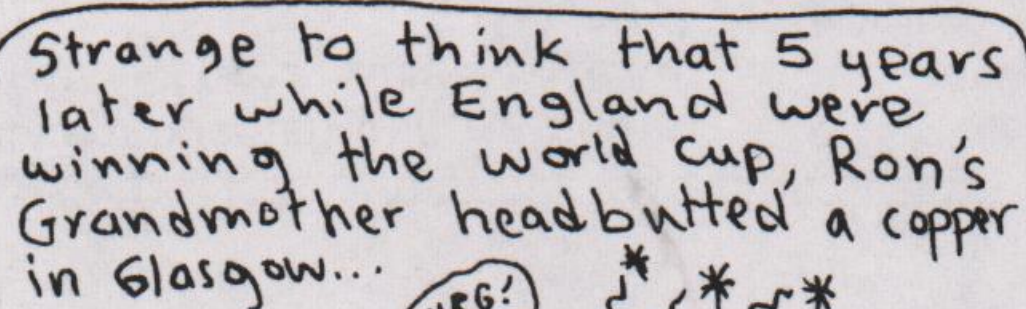 Strange to think that 5 years
later while England were
winning the world cup, Ron's
Grandmother headbutted a copper
in Glasgow...